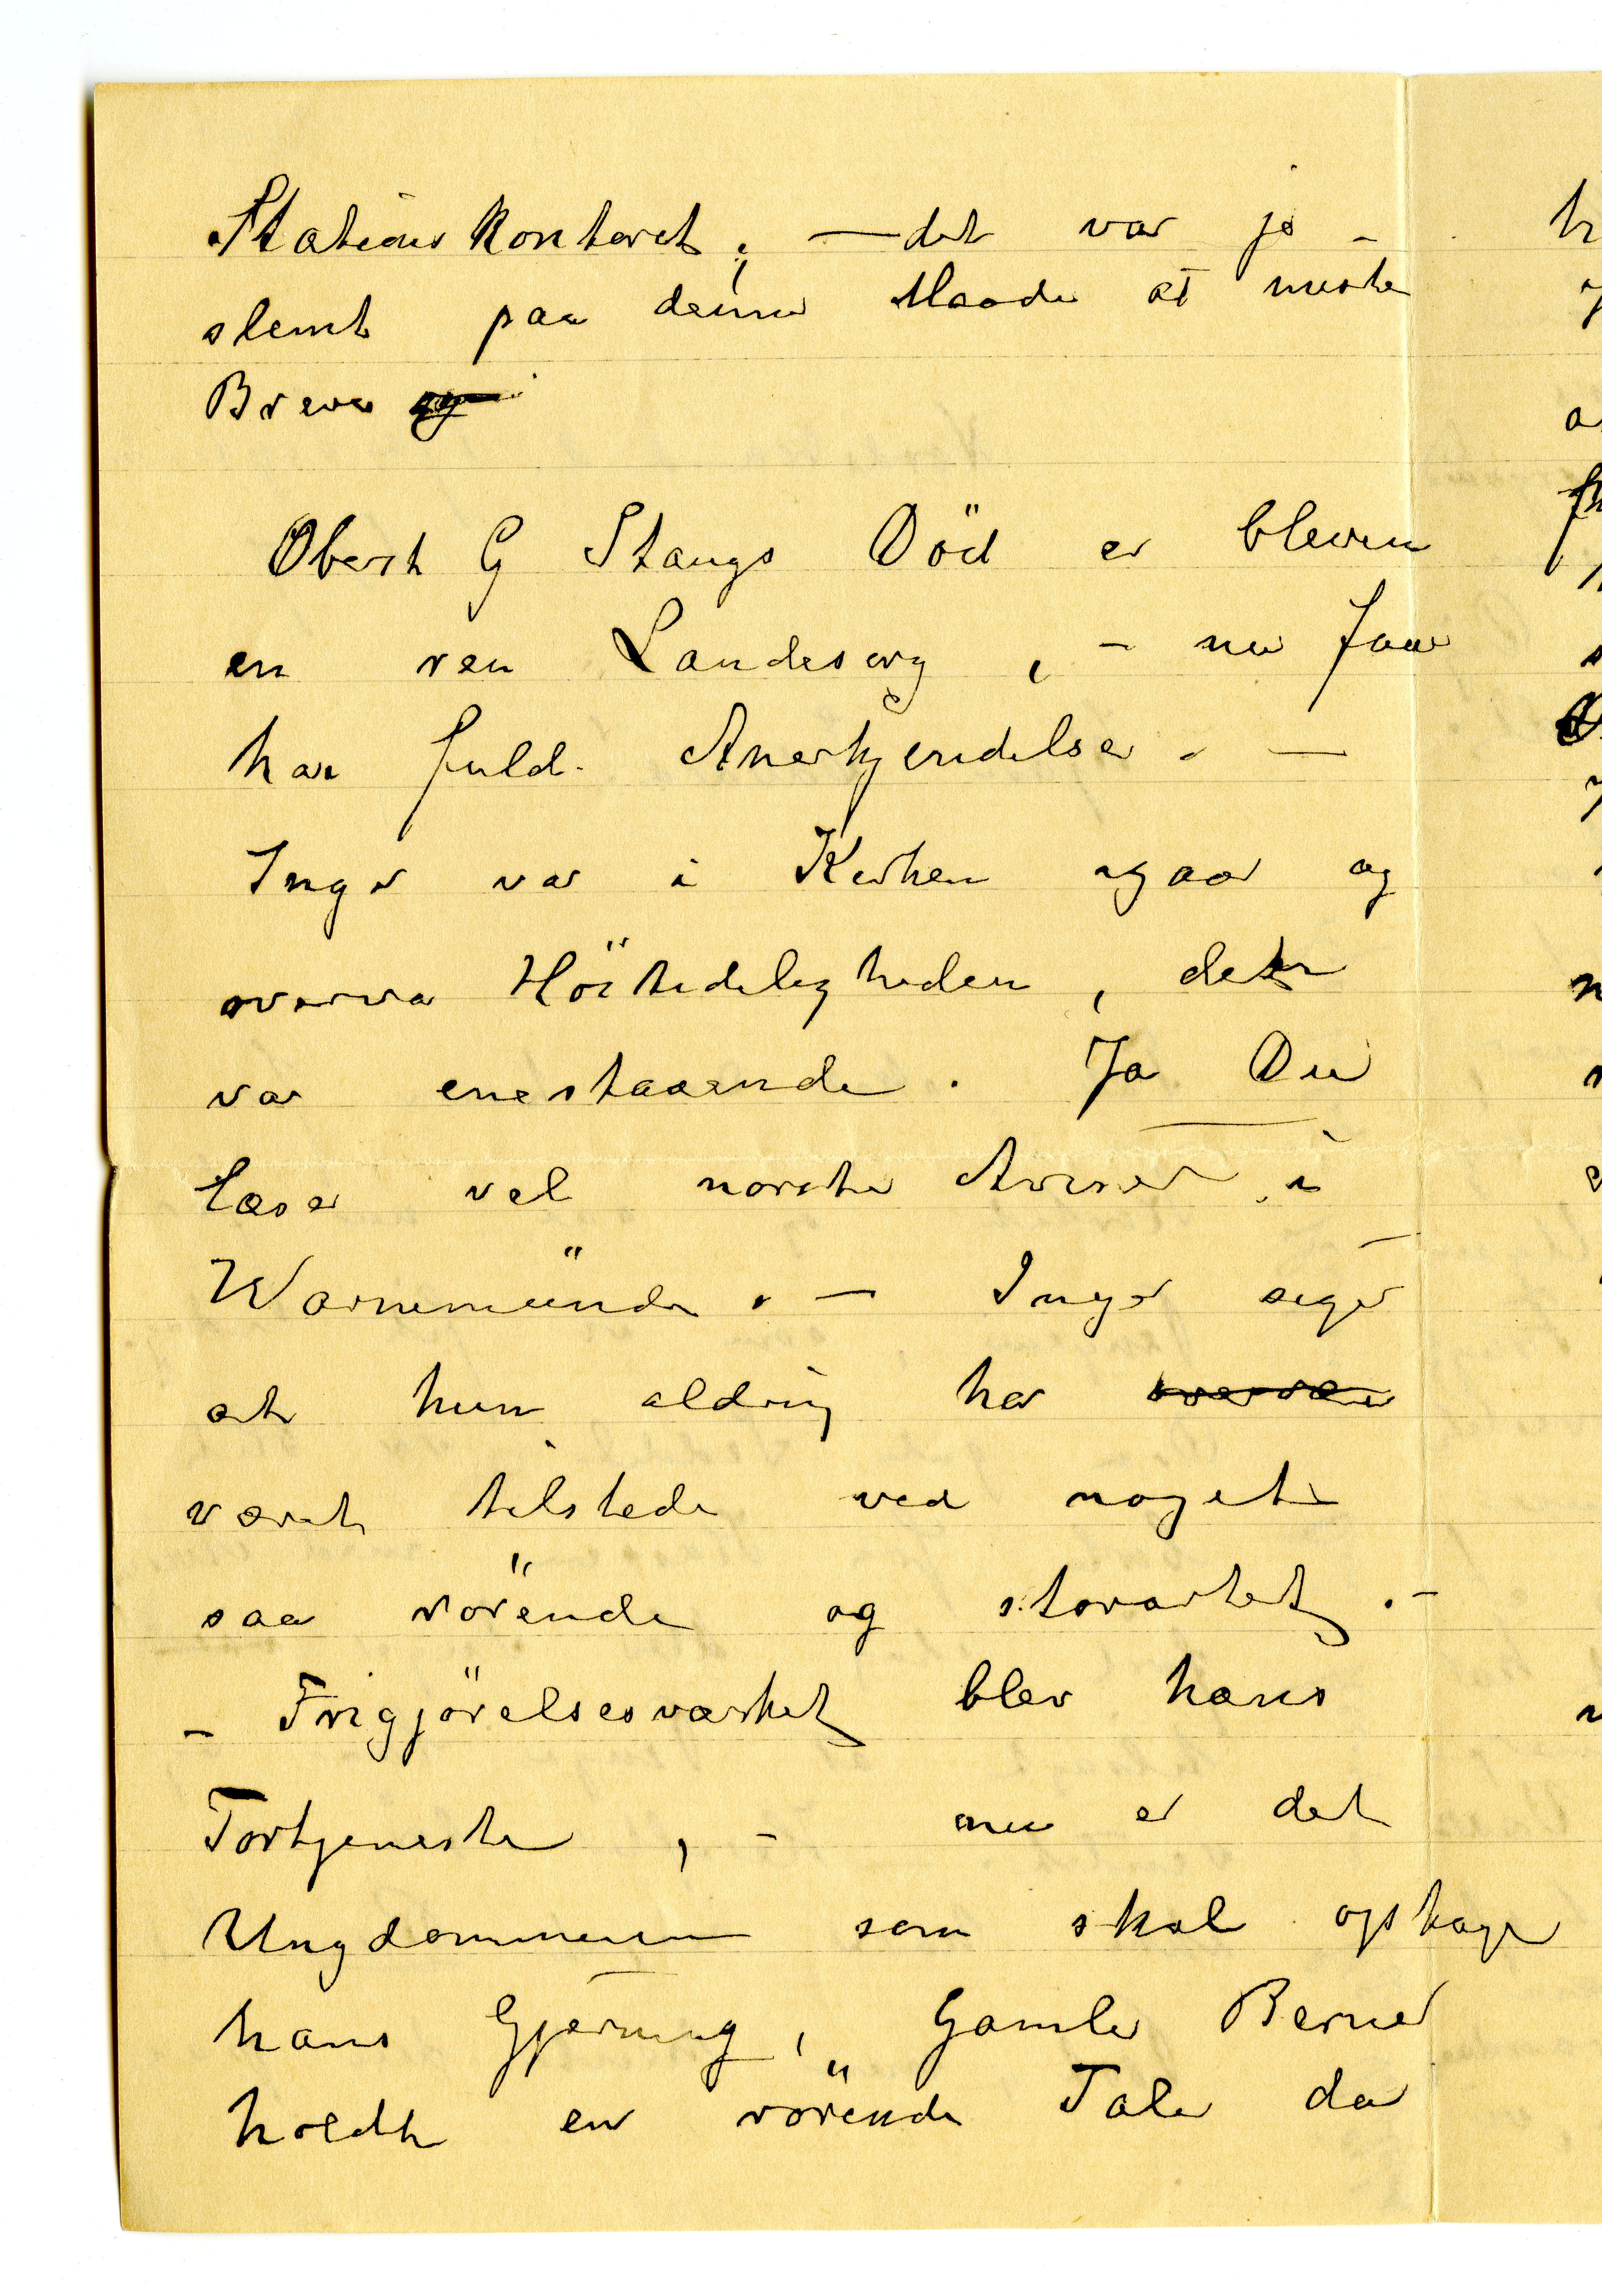 Stationskontoret; — det var jo -
slemt paa denne Maade at miste
Breve og
Oberst G Stangs Död er bleven
en ren Landesorg, - nu faar
han fuld Anerkjendelse. —
Inger var i Kirken igaar og
overva Höitideligheden, den
var enestaaende. Ja Du
læser vel norske Aviser i
Warnemünde. — Inger siger
at hun aldrig har overvær
været tilstede ved noget
saa rörende og storartet. -
- Frigjörelsesværket blev hans
Fortjeneste, - nu er det
Ungdommen som skal optage
hans Gjerning, Gamle Berner
holdt en rörende Tale da